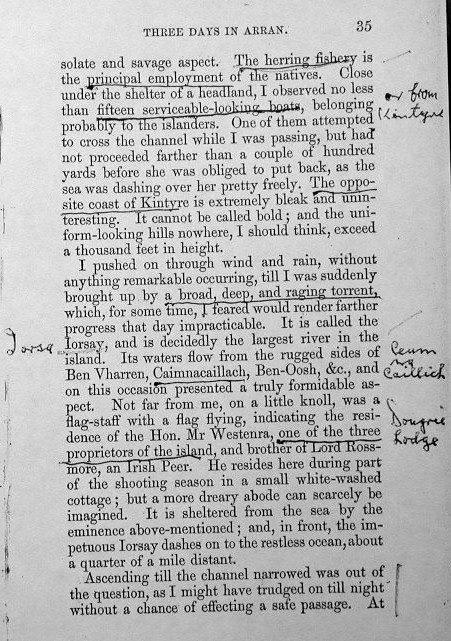 THREE DAYS IN ARRAN. 35
solate and savage aspect. The herring fishery is
the principal employment of the natives. Close
under the shelter of a headland, I observed no less
than fifteen serviceable-looking boats, belonging
probably to the islanders. One of them attempted
to cross the channel while I was passing, but had
not proceeded farther than a couple of hundred
yards before she was obliged to put back, as the
sea was dashing over her pretty freely. The oppo-
site coast of Kintyre is extremely bleak and unin-
teresting. It cannot be called bold; and the uni-
form-looking hills nowhere, I should think, exceed
a thousand feet in height.
I pushed on through wind and rain, without
anything remarkable occurring, till I was suddenly
brought up by a broad, deep, and raging torrent,
which, for some time, I feared would render farther
progress that day impracticable. It is called the
Iorsay, and is decidedly the largest river in the
island. Its waters flow from the rugged sides of
Ben Vharren, Caimnacaillach, Ben-Oosh, &c., and
on this occasion presented a truly formidable as-
pect. Not far from me, on a little knoll, was a
flag-staff with a flag flying, indicating the resi-
dence of the Hon. Mr Westenra, one of the three
proprietors of the island, and brother of Lord Ross-
more, an Irish Peer. He resides here during part
of the shooting season in a small white-washed
cottage; but a more dreary abode can scarcely be
imagined. It is sheltered from the sea by the
eminence above-mentioned; and, in front, the im-
petuous Iorsay dashes on to the restless ocean, about
a quarter of a mile distant.
Ascending till the channel narrowed was out of
the question, as I might have trudged on till night
without a chance of effecting a safe passage. At
or from
Kintyre
Iorsa
Ceum
na
Caillich
Dougrie
Lodge